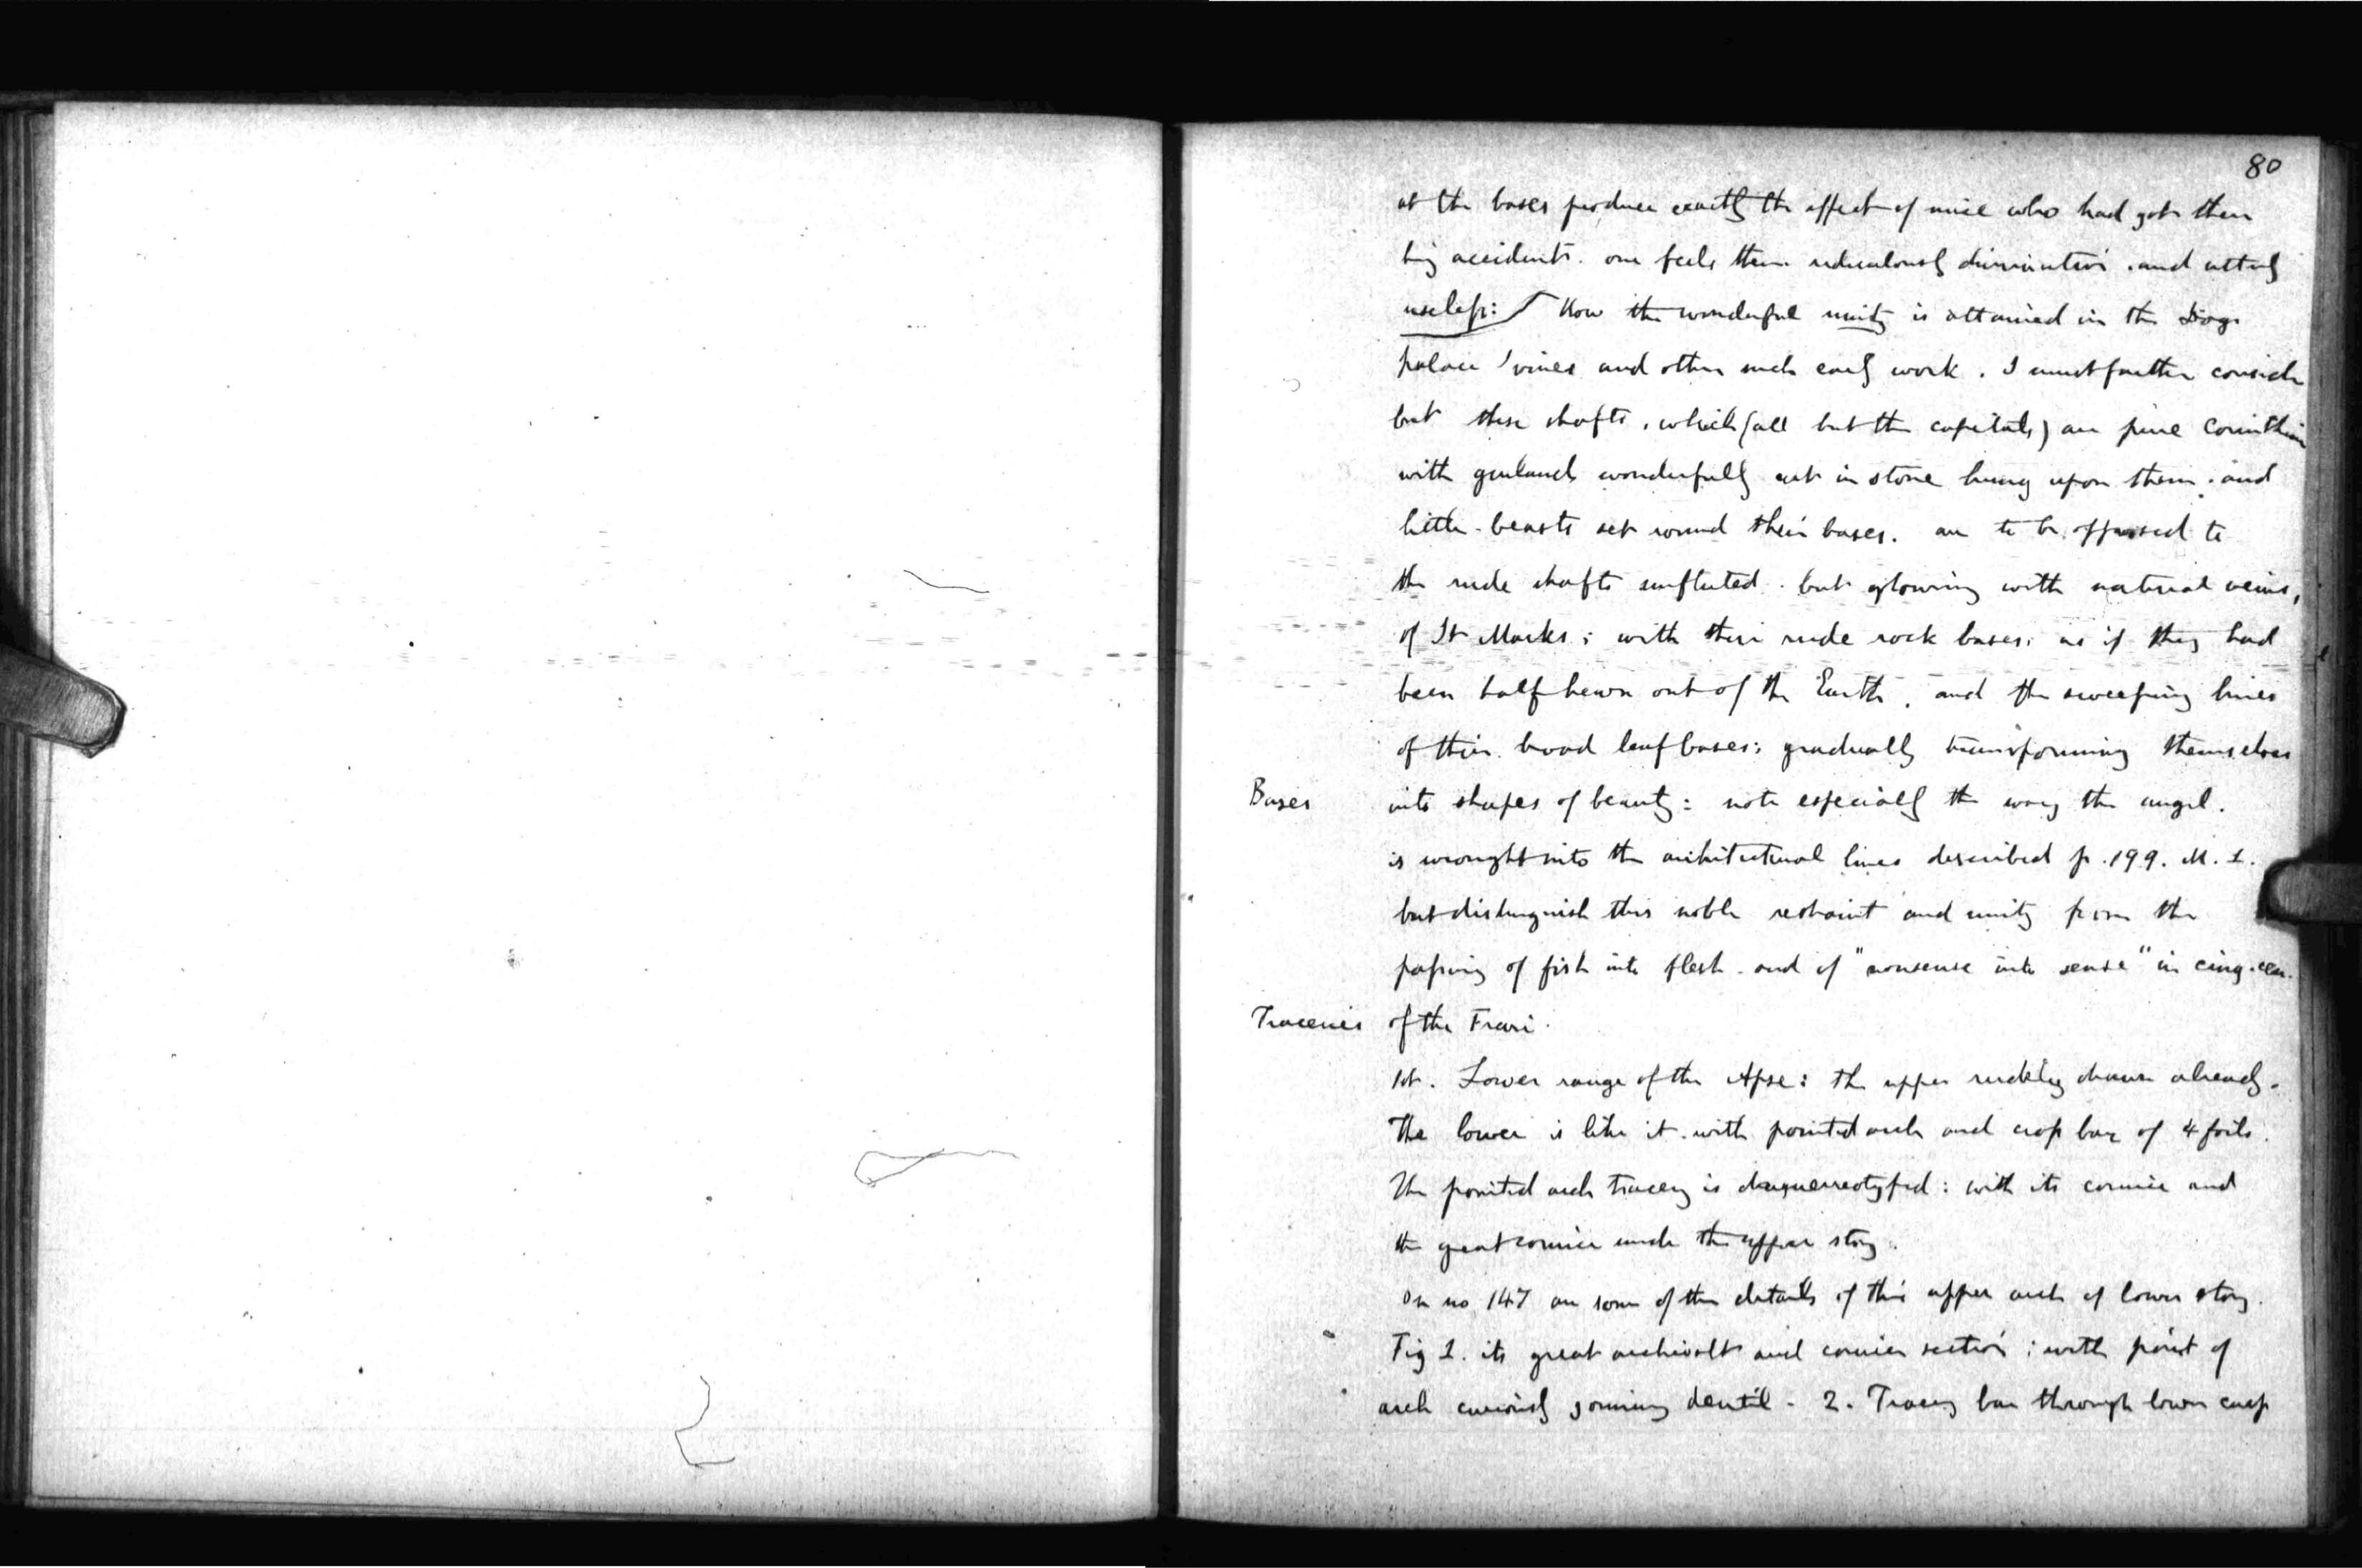 80
at the bases produce exactly the effect of mice who had got there
by accident. one feels them ridiculously diminutive. and utterly
useless: How the wonderful unity is attained in the Doges
palace vines and other such early work. I must farther consider
but these shafts, which (all but the capitals) are pure Corinthian
with garlands wonderfully cut in stone hung upon them. and
little beasts set round their bases. are to be opposed to
the rude shafts unfluted. but glowing with natural veins,
of St Marks; with their rude rock bases: as if they had
been half hewn out of the Earth, and the sweeping lines
of their broad leaf bases: gradually transforming themselves
Bases into shapes of beauty: note especially the way the angel.
is wrought into the architectural lines described p. 199. M. 2.
but distinguish this noble restraint and unity from the
passing of fish into flesh. and of "nonsense into sense" in cinq. cen.
Traceries of the Frari.
1st. Lower range of the Apse: the upper rudely drawn already.
The lower is like it. with pointed arch and cross bar of 4 foils.
The pointed arch tracery is daguerreotyped: with its cornice and
the great cornice under the upper story.
On no 147 are some of the details of this upper arch of lower story.
Fig 1. its great archivolt and cornice section: with point of
arch curiously joining dentil. 2. Tracery bar through lower cusp